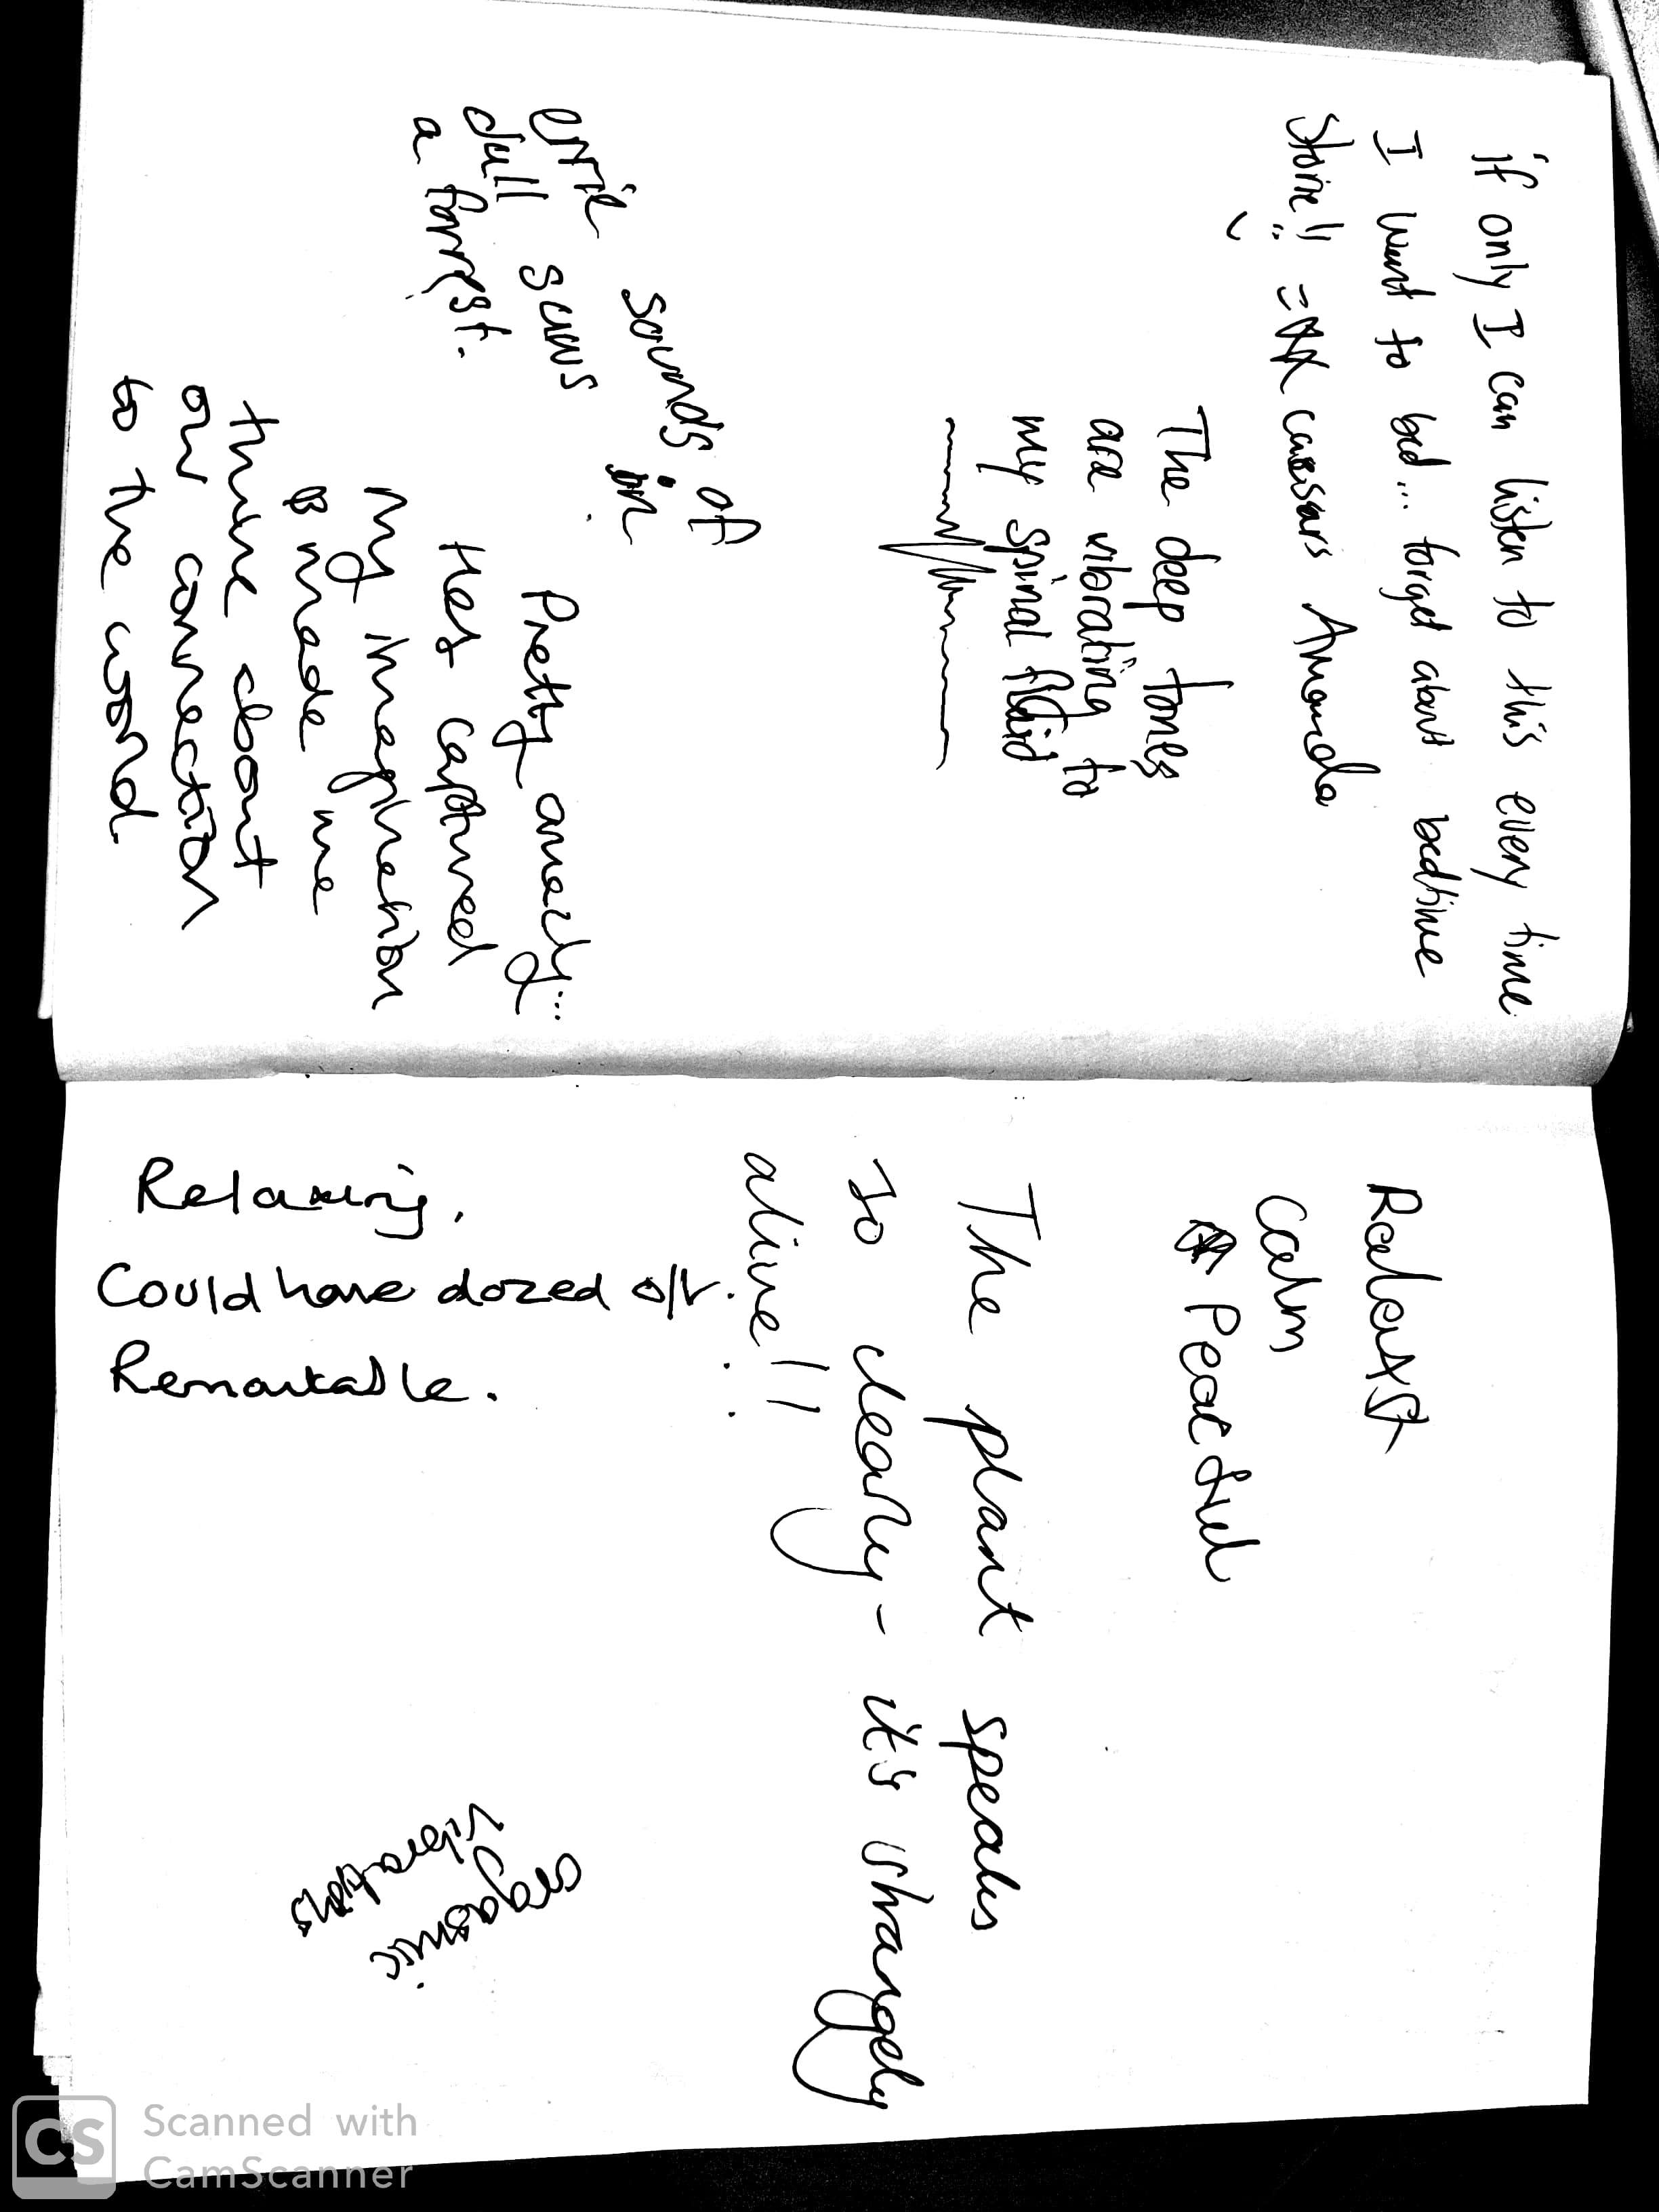 if only I can listen to this every time
I want to bed... forget about bedtime
Storie!!
Amanda
The deep tones
are vibrating to
my spinal fluid
eerie sounds of
dull saws in
a forrest.
Pretty amazing...
Has captured
my imagination
& made me
think about
our connection
to the world.
Relaxst
calm
Peacful
The plant speaks
so clearly - it's strangely
alive!!
Relaxing.
Could have dozed off.
Remarkable.
orgasmic
vibrations
CS
Scanned with
CamScanner